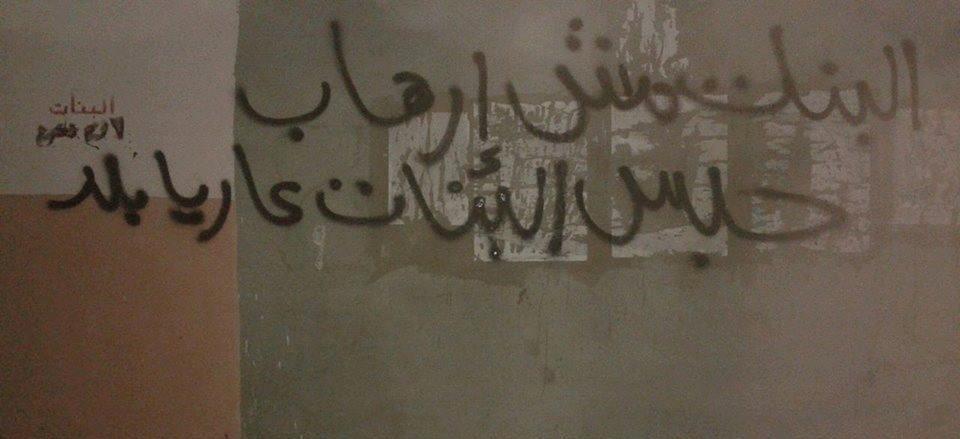 البنات مش ارهاب
حبس البنات عار يا بلد
البنات
لازم تخرج